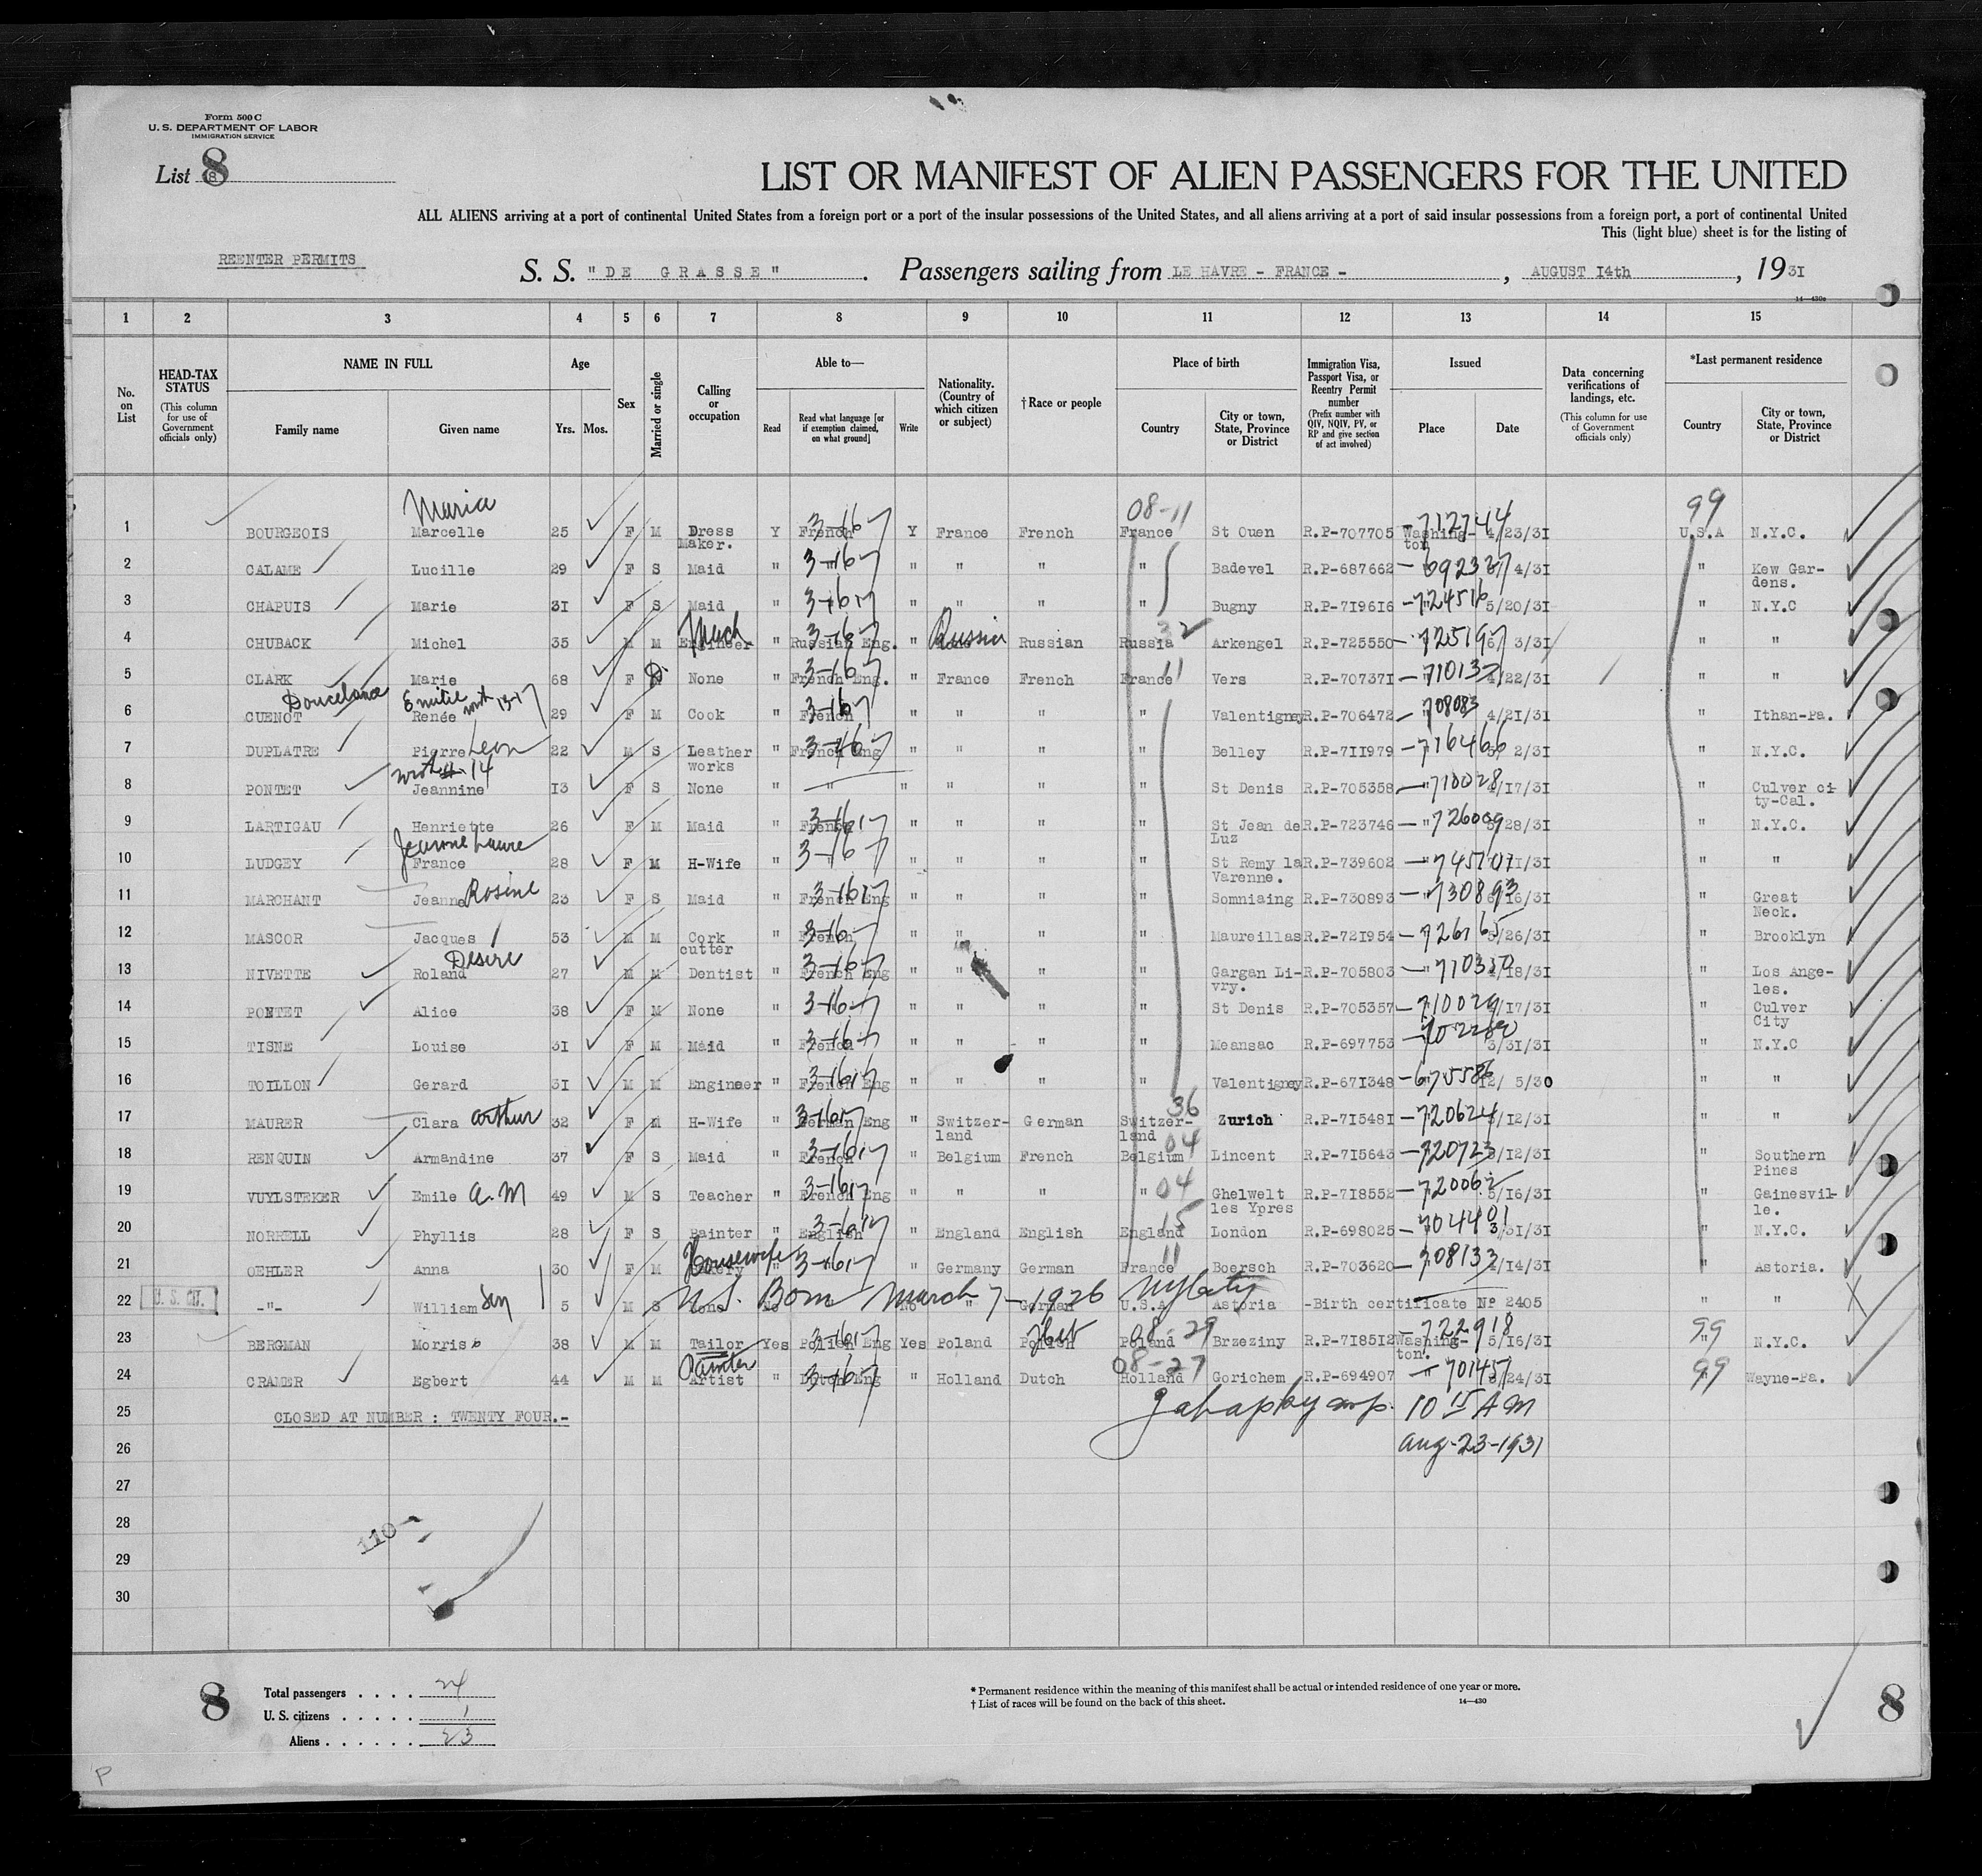 Form 500 C
U. S. DEPARTMENT OF LABOR
IMMIGRATION SERVICE
List 8
LIST OR MANIFEST OF ALIEN PASSENGERS FOR THE UNITED
ALL ALIENS arriving at a port of continental United States from a foreign port or a port of the insular possessions of the United States, and all aliens arriving at a port of said insular possessions from a foreign port, a port of continental United
This (light blue) sheet is for the listing of
REENTER PERMITS
S. S. "DE GRASSE" . Passengers sailing from LE HAVRE - FRANCE - , AUGUST 14th , 1931
14—430c
1 2 3 4 5 6 7 8 9 10 11 12 13 14 15
No. on List
HEAD-TAX STATUS (This column for use of Government officials only)
NAME IN FULL Family name Given name
Age Yrs. Mos.
Sex
Married or single
Calling or occupation
Able to— Read Read what language [or if exemption claimed, on what ground] Write
Nationality. (Country of which citizen or subject)
† Race or people
Place of birth Country City or town, State, Province or District
Immigration Visa, Passport Visa, or Reentry Permit number (Prefix number with QIV, NQIV, PV, or RP and give section of act involved)
Issued Place Date
Data concerning verifications of landings, etc. (This column for use of Government officials only)
*Last permanent residence Country City or town, State, Province or District
Maria 08-11 99
1 BOURGEOIS Marcelle 25 F M Dress Maker. Y French Y France French France St Ouen R.P-707705 -712744 Washington 4/23/31 U.S.A N.Y.C.
2 CALAME Lucille 29 F S Maid " " " " " " Badevel R.P-687662 4/31 " Kew Gardens.
3 CHAPUIS Marie 31 F S Maid " " " " " " Bugny R.P-719616 -724516 5/20/31 " N.Y.C
4 CHUBACK Michel 35 M M Mech Engineer " Russian Eng. " Russia Russian Russia 32 Arkengel R.P-725550 -725197 6/ 3/31 " "
5 CLARK Marie 68 F D. None " French Eng. " France French France 11 Vers R.P-707371 -71013 4/22/31 " "
6 CUENOT Doucelance Emilie Renée 29 F M Cook " French " " " " Valentigney R.P-706472 -708083 4/21/31 " Ithan-Pa.
7 DUPLATRE Pierre Leon 22 M S Leather works " French Eng " " " " Belley R.P-711979 -716466 5/ 2/31 " N.Y.C.
8 PONTET Jeannine 13 F S None " " " " " " St Denis R.P-705358 -710028 4/17/31 " Culver city-Cal.
9 LARTIGAU Henriette 26 F M Maid " French " " " " St Jean de Luz R.P-723746 -726009 5/28/31 " N.Y.C.
10 LUDGEY Jeanne Laure France 28 F M H-Wife " " " " " " St Remy la Varenne. R.P-739602 " "
11 MARCHANT Jeanne Rosine 23 F S Maid " French Eng " " " " Somniaing R.P-730893 -730893 6/16/31 " Great Neck.
12 MASCOR Jacques 53 M M Cork cutter " French " " " " Maureillas R.P-721954 -726165 5/26/31 " Brooklyn
13 NIVETTE Roland Desire 27 M M Dentist " French Eng " " " " Gargan Livry. R.P-705803 -710330 4/18/31 " Los Angeles.
14 PONTET Alice 38 F M None " " " " " " St Denis R.P-705357 -710029 4/17/31 " Culver City
15 TISNE Louise 31 F M Maid " French " " " " Meansac R.P-697753 3/31/31 " N.Y.C
16 TOILLON Gerard 31 M M Engineer " French Eng " " " " Valentigney R.P-671348 -675586 12/ 5/30 " "
17 MAURER Clara Arthur 32 F M H-Wife " German Eng " Switzerland German Switzerland 36 Zurich R.P-715481 -720624 5/12/31 " "
18 RENQUIN Armandine 37 F S Maid " French " Belgium French Belgium 04 Lincent R.P-715643 -720723 5/12/31 " Southern Pines
19 VUYLSTEKER Emile A. M 49 M S Teacher " French Eng " " " " 04 Ghelwelt les Ypres R.P-718552 -720062 5/16/31 " Gainesville.
20 NORRELL Phyllis 28 F S Painter " English " England English England 15 London R.P-698025 -704401 3/31/31 " N.Y.C.
21 OEHLER Anna 30 F M Housewife " " Germany German France 11 Boersch R.P-703620 -708133 4/14/31 " Astoria.
22 U. S. CH. -"- William son 5 M S None No U.S. Born March 7-1926 NY City No " German U.S.A Astoria -Birth certificate Nº 2405 " "
23 BERGMAN Morris 38 M M Tailor Yes Polish Eng Yes Poland Heb Polish Poland 08-29 Brzeziny R.P-718512 -722918 Washington. 5/16/31 99 " N.Y.C.
24 CRAMER Egbert 44 M M Painter Artist " Dutch Eng " Holland Dutch Holland 08-27 Gorichem R.P-694907 -70145 3/24/31 99 " Wayne-Pa.
25 CLOSED AT NUMBER : TWENTY FOUR.- 10 15 AM
26 Aug-23-1931
27
28
29
30
110
8 Total passengers . . . . 24
U. S. citizens . . . . . 1
Aliens . . . . . . 23
* Permanent residence within the meaning of this manifest shall be actual or intended residence of one year or more.
† List of races will be found on the back of this sheet. 14—430
8
P